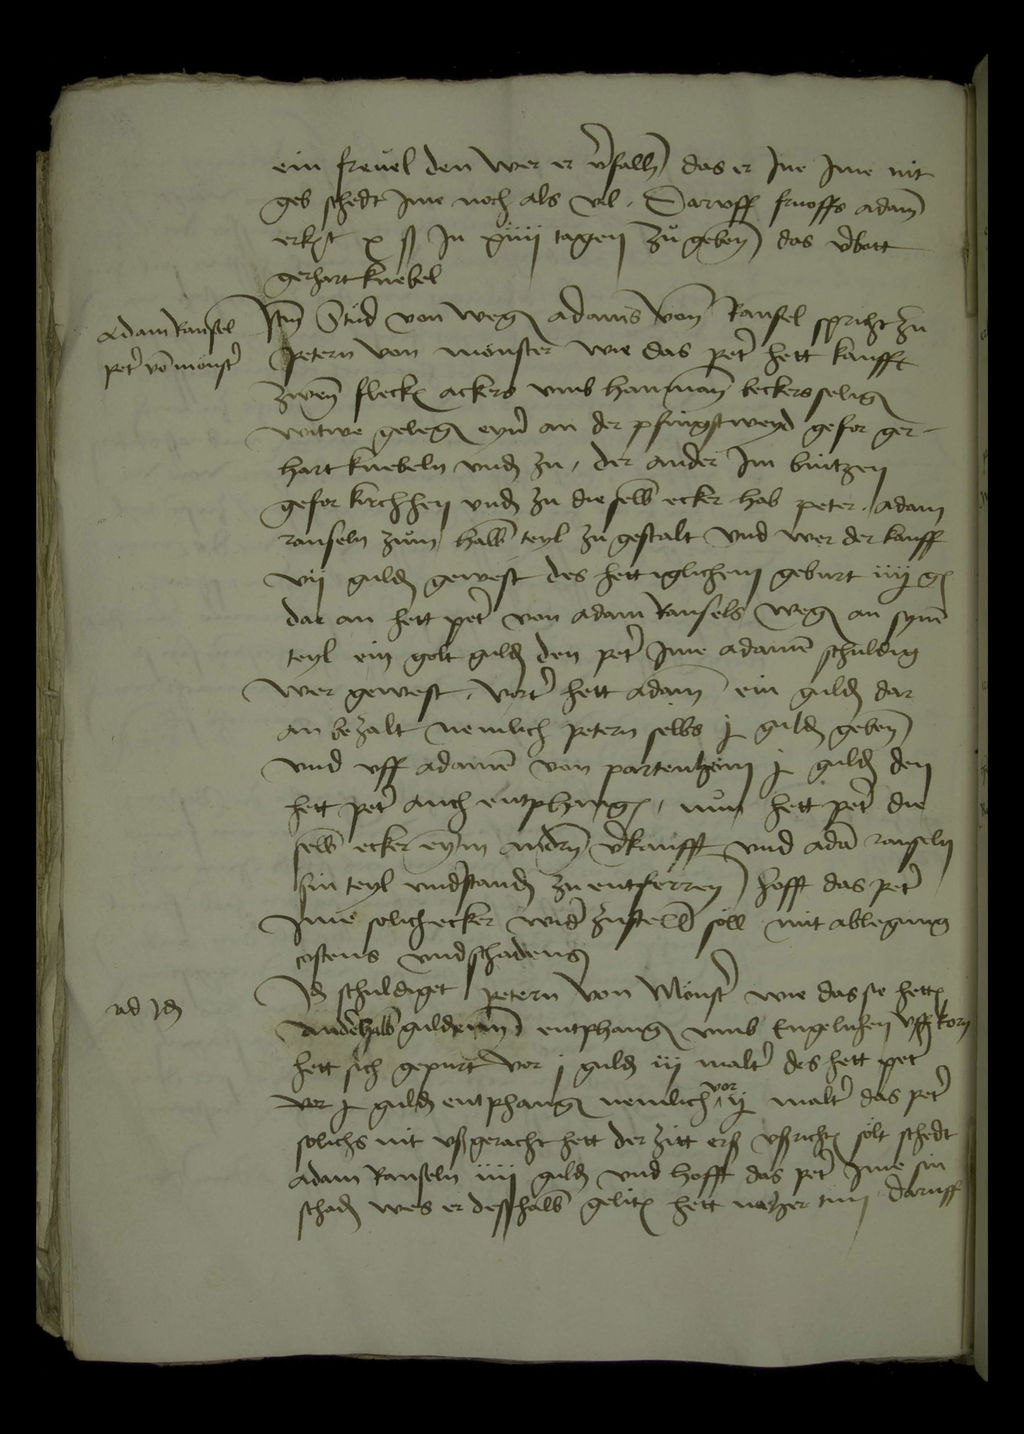 ein freuel den wer er v̉fallñ das er Ine Ime nit
geb schedt Ime noch als vil . Daruff fruoffs adam̄
erkēt x ß In xiiij tagen zu gebenn das v̉bott
gerhart knebel
Adam Ransel
pet̉ vō monst̉
Itm̄ Stud von weg adams von Ransel spricht zu
Petern von monster wie das pet̉ hett kaufft
zwen fleck ackers vmb hanman beckers selig
witwe geleg eyn̉ an der pfingstweyd gefor ger-
hart knebeln vnd zu / der ander Im bintzen
gefor kirchhen vnd zu die selb̄ ecker hab peter adam
ranseln zum halb̄ teyl zu gestalt vnd wer der kauff
vij guld gewest des hett iglichem geburt iiij g
dar an hett pet̉ von adam Ransels weg an sym̄
teyl ein golt guld den pet̉ Ime adamē schuldig
wer gewest . vort̉ hett adam̄ ein guld dar
an bezalt nemlich petern selbs j guld gebenn
vnd vff adamē von partenheim j guld den
hett pet̉ auch entphang / nun hett pet̉ die
selb̄ ecker eym andn̄ v̉kaufft vnd adā ranseln
sin teyl vnd̉stand zu entferren hofft das pet̉
Ime solich ecker wid̉ zustelle söll mit ablegung
costens vnd schadens
ad Id
Id schuldiget Petern von Monst̉ wie das sie hett
and̉halb guldenn entphang vmb Engelnhen vff korn
hett sich gepurt vor j guld iij malt̉ des hett pet̉
vor j guld entphang nemlich vor ij malt̉ das pet̉
solichs nit vßgeracht hett der zitt erß vßricht solt schedt
Adam Ranseln iiij guld vnd hofft das pet̉ Ime sin
schad wes er desshalb̄ gelit hett ... tun Daruff